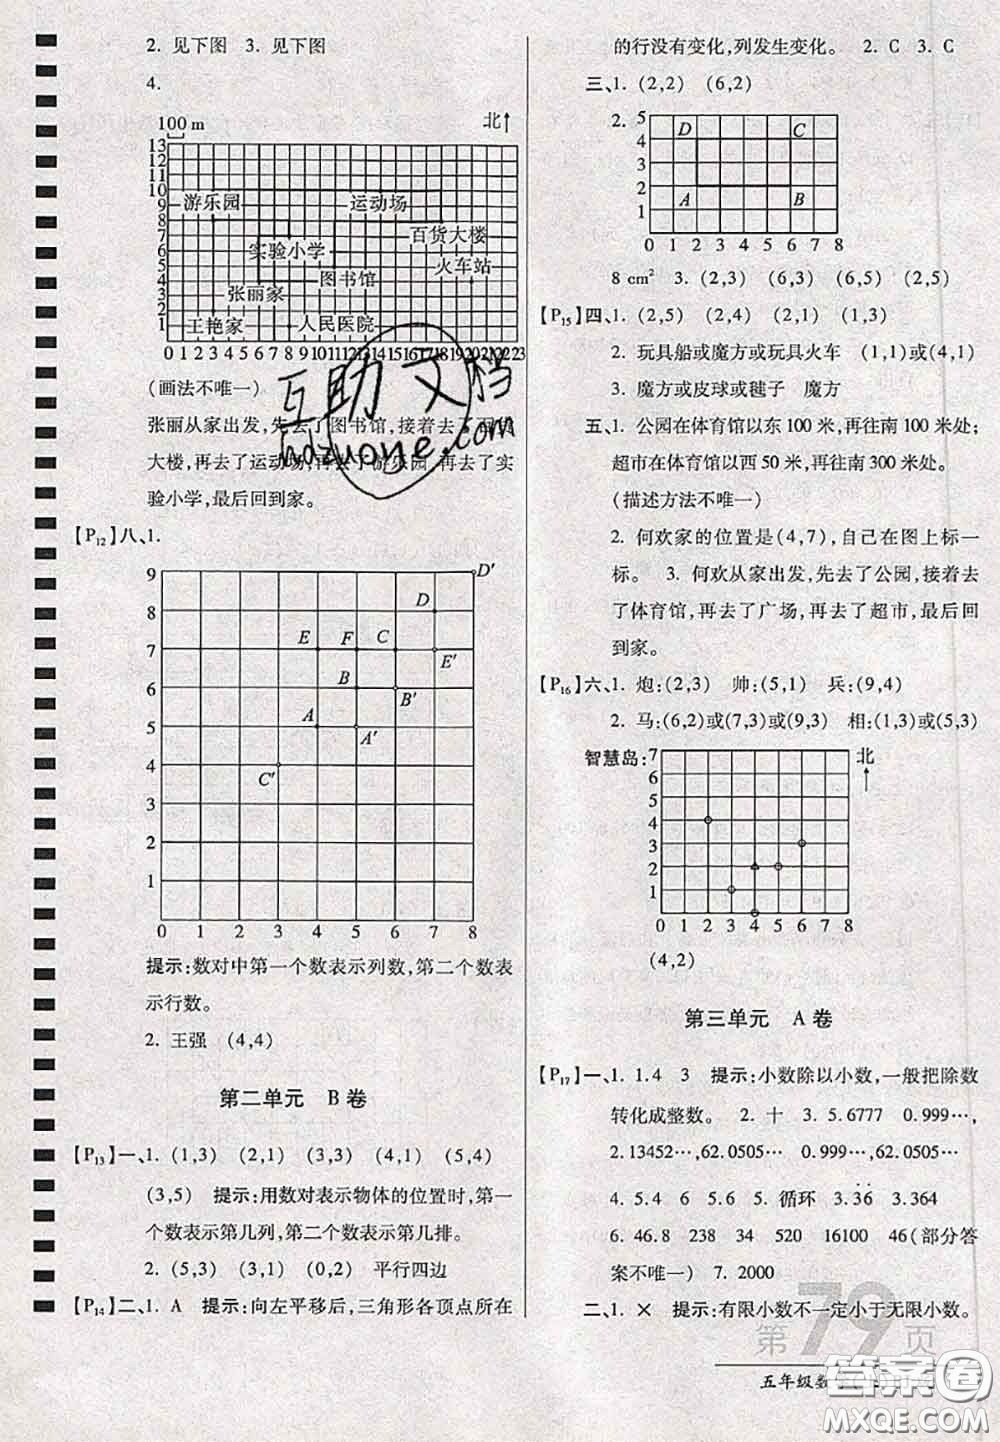 2. 见下图　3. 见下图
4.
100 m
北↑
13
12
11
10
9
8
7
6
5
4
3
2
1
游乐园
运动场
百货大楼
实验小学
火车站
图书馆
张丽家
王艳家
人民医院
0 1 2 3 4 5 6 7 8 9 10 11 12 13 14 15 16 17 18 19 20 21 22 23
(画法不唯一)
张丽从家出发,先去了图书馆,接着去了百货
大楼,再去了运动场,再去了游乐园,再去了实
验小学,最后回到家。
【P12】八、1.
9
8
7
6
5
4
3
2
1
D′
D
E F C
E′
B
B′
A
A′
C′
0 1 2 3 4 5 6 7 8
提示:数对中第一个数表示列数,第二个数表
示行数。
2. 王强　(4,4)
第二单元　B 卷
【P13】一、1. (1,3)　(2,1)　(3,3)　(4,1)　(5,4)
(3,5)　提示:用数对表示物体的位置时,第一
个数表示第几列,第二个数表示第几排。
2. (5,3)　(3,1)　(0,2)　平行四边
【P14】二、1. A　提示:向左平移后,三角形各顶点所在
的行没有变化,列发生变化。　2. C　3. C
三、1. (2,2)　(6,2)
2.
5
4
3
2
1
D C
A B
0 1 2 3 4 5 6 7 8
8 cm²　3. (2,3)　(6,3)　(6,5)　(2,5)
【P15】四、1. (2,5)　(2,4)　(2,1)　(1,3)
2. 玩具船或魔方或玩具火车　(1,1)或(4,1)
3. 魔方或皮球或毽子　魔方
五、1. 公园在体育馆以东 100 米,再往南 100 米处;
超市在体育馆以西 50 米,再往南 300 米处。
(描述方法不唯一)
2. 何欢家的位置是(4,7),自己在图上标一
标。　3. 何欢从家出发,先去了公园,接着去
了体育馆,再去了广场,再去了超市,最后回
到家。
【P16】六、1. 炮:(2,3)　帅:(5,1)　兵:(9,4)
2. 马:(6,2)或(7,3)或(9,3)　相:(1,3)或(5,3)
智慧岛:
7
6
5
4
3
2
1
北↑
0 1 2 3 4 5 6 7 8
(4,2)
第三单元　A 卷
【P17】一、1. 1.4　3　提示:小数除以小数,一般把除数
转化成整数。　2. 十　3. 5.6777　0.999…,
2.13452…,62.0505…　0.999…,62.0505…
4. 5.4　5.6　5. 循环　3.3̇6̇　3.364
6. 46.8　238　34　520　16100　46(部分答
案不唯一)　7. 2000
二、1. ×　提示:有限小数不一定小于无限小数。
第79页
五年级数
互助文档
hdzuoye.com
答案圈
MXQE.COM